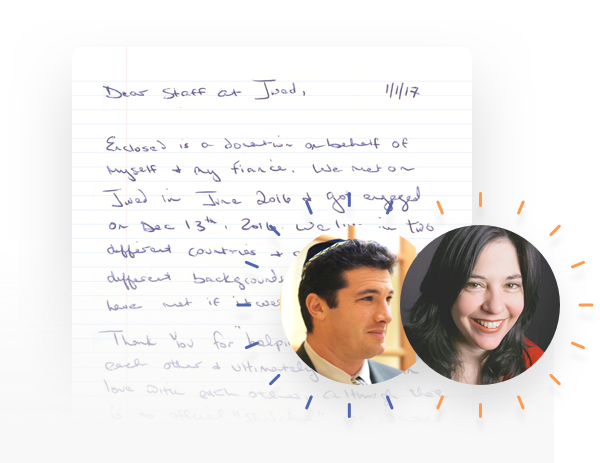 Dear Staff at Jwed, 1/1/17
Enclosed is a donation on behalf of
myself + my fiance. We met on
Jwed in June 2016 + got engaged
on Dec 13th, 2016. We live in two
different countries +
different backgrounds
have met if it
Thank you for helping
each other + ultimately
love with each other. Although this
is an official